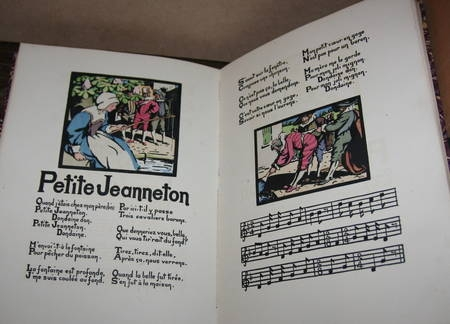 Petite Jeanneton
Quand j'étais chez mon père (bis)
Petite Jeanneton.
Dondaine don.
Petite Jeanneton.
Dondaine.
M'envoi't-à la fontaine
Pour pêcher du poisson.
La fontaine est profonde,
J'me suis coulée au fond.
Par ici-t-il y passe
Trois cavaliers barons.
Que donneriez-vous, belle,
Qui vous tir'rait du fond?
Tirez, tirez, dit-elle,
Après ça, nous verrons.
Quand la belle fut tirée,
S'en fut à la maison.
S'assit sur la fenêtre,
Compose une chanson.
Ce n'est pas ça, la belle,
Que nous demandons.
C'est votre cœur en gage
Mon petit cœur en gage
N'est pas pour un baron.
Ma mère me le garde
Pour mon joli mignon.
Dondaine don.
Pour mon joli mignon.
Dondaine.